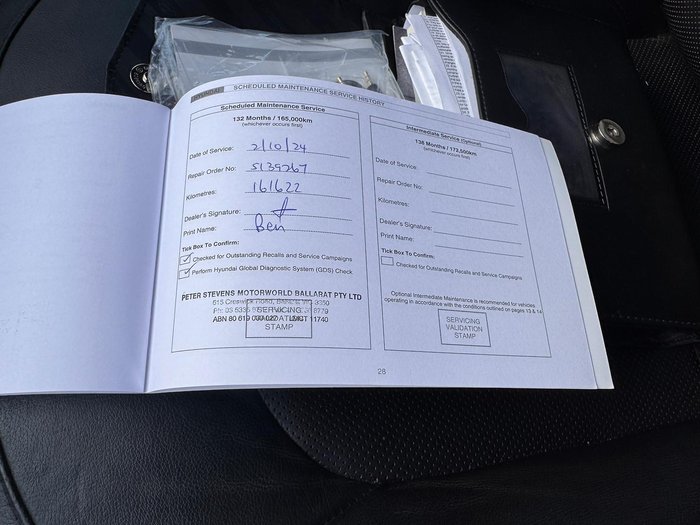 HYUNDAI SCHEDULED MAINTENANCE SERVICE HISTORY
Scheduled Maintenance Service
132 Months / 165,000km
(whichever occurs first)
Date of Service: 2/10/24
Repair Order No: 5139267
Kilometres: 161622
Dealer's Signature:
Print Name: Ben
Tick Box To Confirm:
Checked for Outstanding Recalls and Service Campaigns
Perform Hyundai Global Diagnostic System (GDS) Check
PETER STEVENS MOTORWORLD BALLARAT PTY LTD
615 Creswick Road,
SERVICING
ABN 80 619
LMCT 11740
STAMP
Intermediate Service (Optional)
138 Months / 172,500km
(whichever occurs first)
Date of Service:
Repair Order No:
Kilometres:
Dealer's Signature:
Print Name:
Tick Box To Confirm:
Checked for Outstanding Recalls and Service Campaigns
Optional Intermediate Maintenance is recommended for vehicles
operating in accordance with the conditions outlined on pages 13 & 14
SERVICING
VALIDATION
STAMP
28